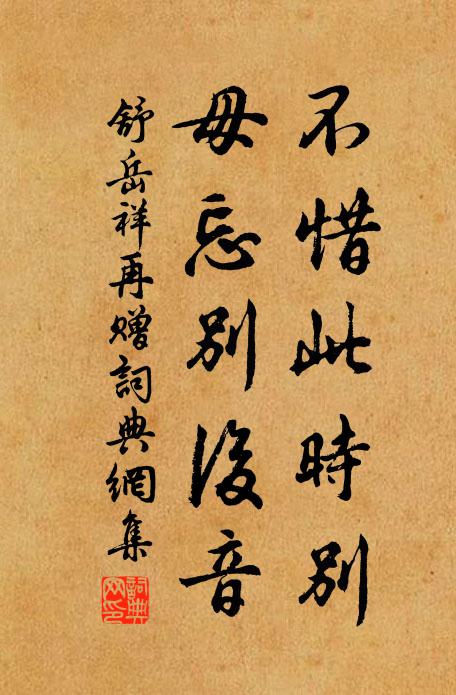 不惜此時別
毋忘別後音
舒岳祥再贈詞典網集
詞典網印